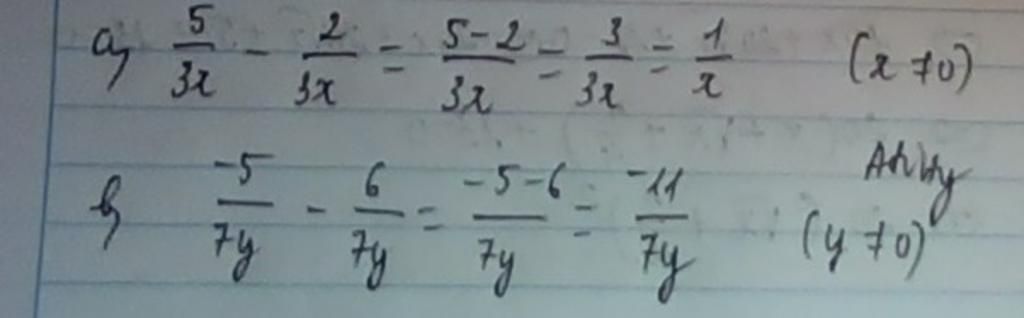 a) 5/3x - 2/3x = 5-2/3x = 3/3x = 1/x (x ≠ 0)
b) -5/7y - 6/7y = -5-6/7y = -11/7y (y ≠ 0)